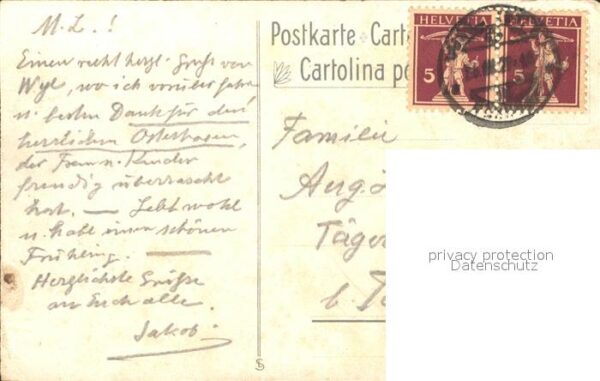 M. L. !
Einen recht herzl. Gruss von
Wyl, wo ich vorüber fahre
u. besten Dank für den
herrlichen Osterhasen,
der Frau u. Kinder
freudig überrascht
hat. — Lebt wohl
u. habt einen schönen
Frühling. —
Herzlichste Grüsse
an Euch alle.
Jakob.
Postkarte Cart
Cartolina po
HELVETIA HELVETIA
5 5
Familie
Aug.
Täger
b.
privacy protection
Datenschutz